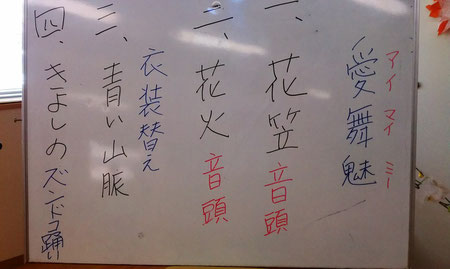 アイ マイ ミー
愛舞魅
一、花笠音頭
一、花火音頭
衣装替え
三、青い山脈
四、きよしのズンドコ踊り